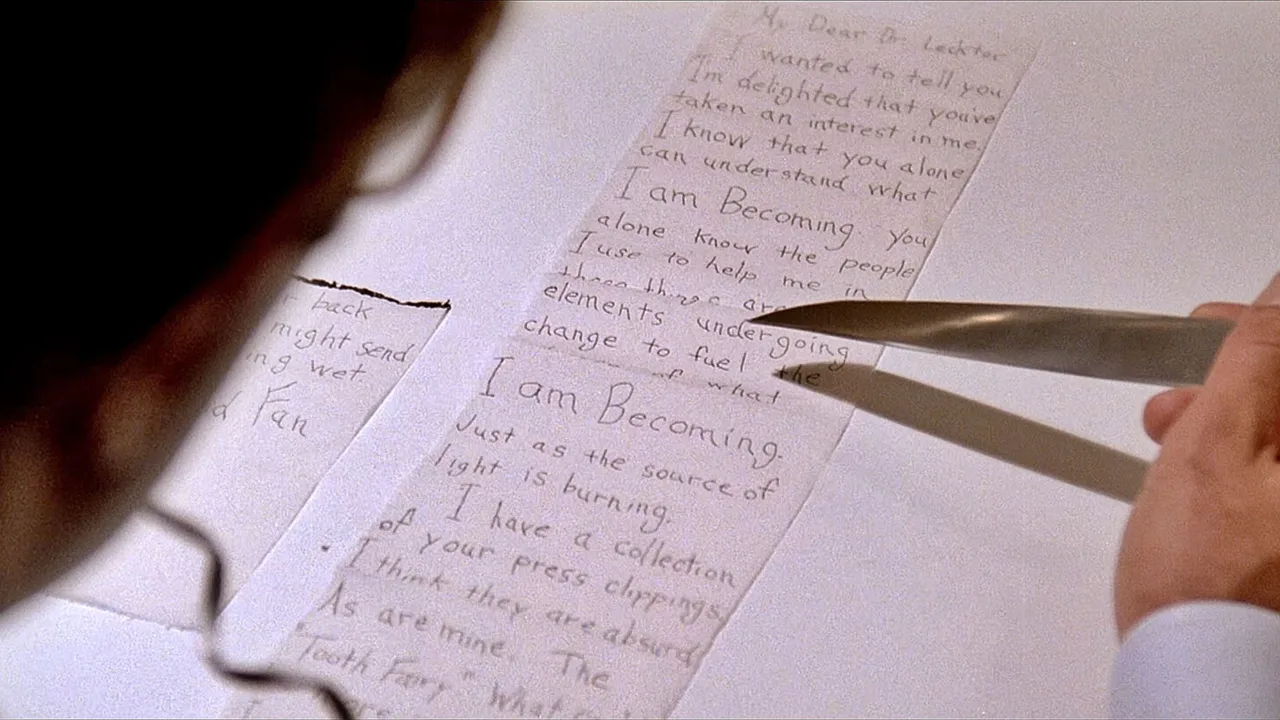 My Dear Dr. Lecktor
I wanted to tell you
I'm delighted that you've
taken an interest in me.
I know that you alone
can understand what
I am Becoming. you
alone know the people
I use to help me in
these things are
elements undergoing
change to fuel the
of what
I am Becoming.
Just as the source of
light is burning.
I have a collection
of your press clippings.
I think they are absurd
As are mine. The
"Tooth Fairy" What
r back
might send
ing wet.
d Fan